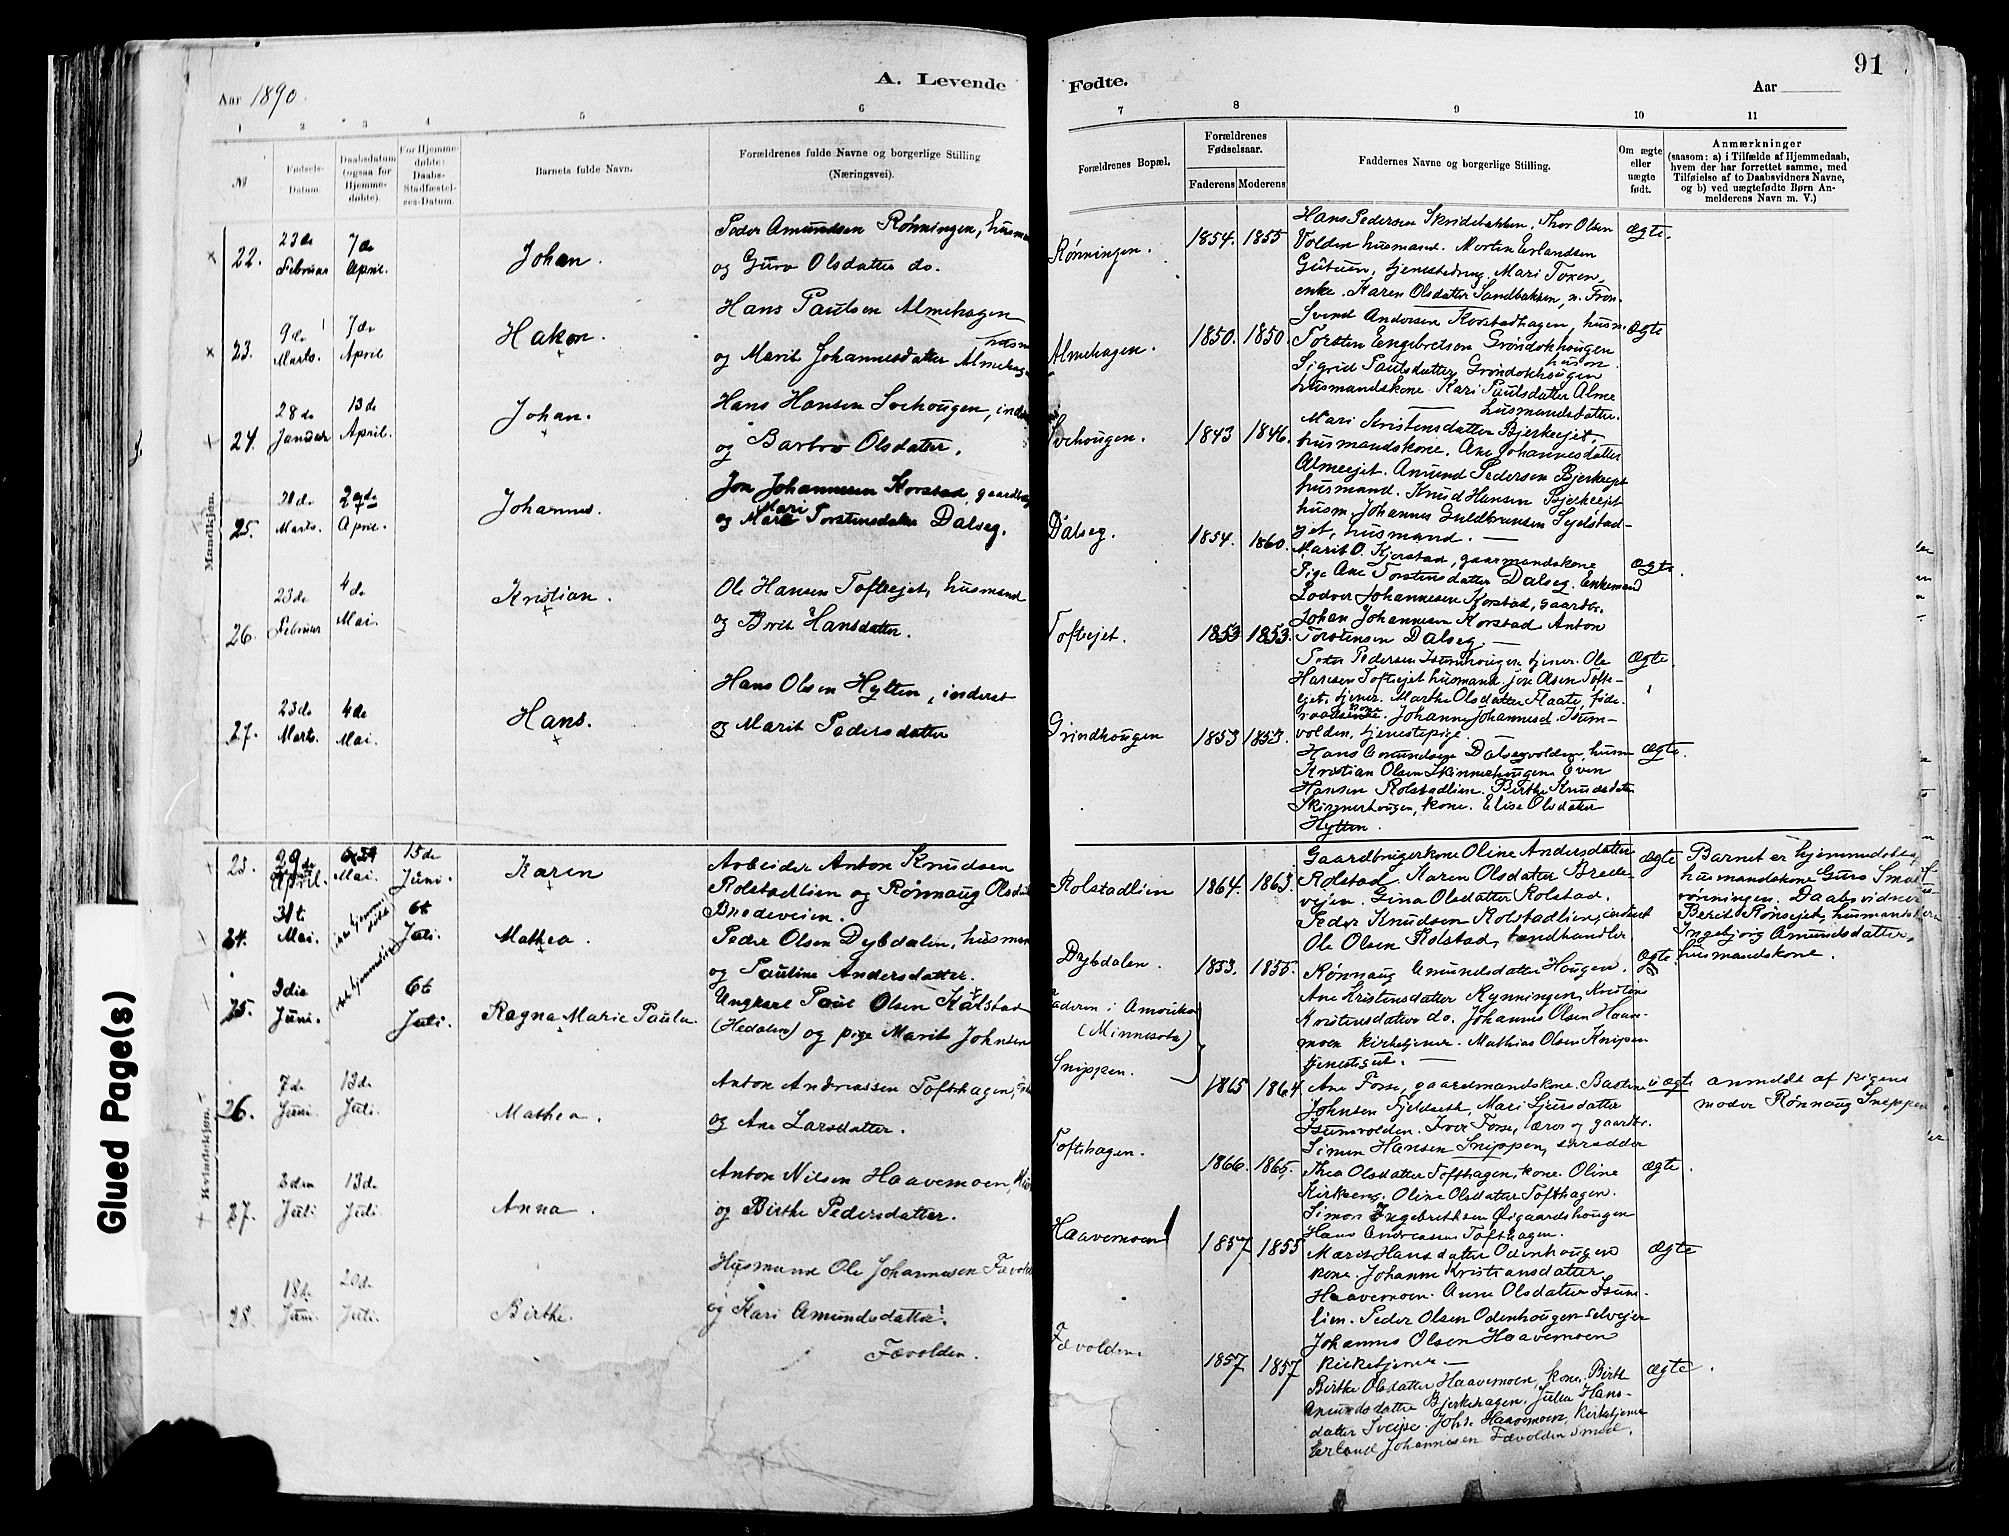 91
Aar 1890.
A. Levende
Fødte.
Aar
1 2 3 4 5 6
7 8 9 10 11
№
Fødsels-
Datum.
Daabsdatum
(ogsaa for
Hjemme-
døbte).
For Hjemme-
døbte:
Daabs-
Stadfæstel-
ses-Datum.
Barnets fulde Navn.
Forældrenes fulde Navne og borgerlige Stilling
(Næringsvei).
Forældrenes Bopæl.
Forældrenes
Fødselsaar.
Faderens Moderens
Faddernes Navne og borgerlige Stilling.
Om ægte
eller
uægte
født.
Anmærkninger
(saasom: a) i Tilfælde af Hjemmedaab,
hvem der har forrettet samme, med
Tilføielse af to Daabsvidners Navne,
og b) ved uægtefødte Børn An-
melderens Navn m. V.)
Mandkjøn.
22. 23de Februar 7de April. Johan.
Peder Amundsen Rønningen, husm
og Guro Olsdatter do.
Rønningen. 1854. 1855
Hans Pedersen Skridebakken, Thor Olsen
Volden husmand. Morten Erlandsen
tjenestedreng. Mari
enke. Karen Olsdatter Sandbakken,
ægte.
23. 9de Marts. 7de April Hakon.
Hans Paulsen Almehagen
husm
og Marit Johannesdatter Almehag
Almehagen. 1850. 1850
Svend Andersen Korstadhagen, husm.
Torsten Engebretsen Grøndokhougen
husm.
Sigrid Paulsdatter Grøndokhougen
husmandskone. Kari Paulsdatter Alme
husmandsdatter.
ægte
24. 28de Januar 13de April. Johan.
Hans Hansen Svehougen, inder
og Barbro Olsdatter.
Svehougen. 1843 1846.
Mari Kristensdatter Bjerkeejet,
husmandskone. Ane Johannesdatter
Almeejet. Amund Pedersen Bjerkeejet
husmand. Knud Hansen Bjerkeejet
husm. Johannes Guldbrandsen
ejet, husmand.
25. 20de Marts. April Johannes.
Jon Johannesen Korstad, gaardbrug
Mari
og Torstensdatter Dalseg.
Dalseg. 1854. 1860.
Marit O. Kjorstad, gaarmandskone
Pige Ane Torstensdatter Dalseg. Enkemand
Lodver Johannesen Korstad, gaardbr.
Johan Johannesen Korstad. Anton
Torstensen Dalseg.
ægte.
26. 23de Februar 4de Mai. Kristian.
Ole Hansen Tofteejet, husmand
og Brit Hansdatter.
Tofteejet. 1853 1853.
Peder Pedersen Isumhougen tjener. Ole
Hansen Tofteejet husmand. Jon Olsen Tofte-
ejet, tjener. Marthe Olsdatter Flaate, føde-
kone. Johanne Johannesd. Isum-
volden, tjenestepige.
ægte.
27. 23de Marts. 4de Mai. Hans.
Hans Olsen Hylten, inderst
og Marit Pedersdatter
Grindhougen 1853 1853.
Hans Amundsen Dalsegvolden, husm
Kristian Olsen Skinnerhougen. Even
Hansen Rolstadlien. Birthe Knudsdatter
Skinnerhougen, kone. Elise Olsdatter
Hylten.
ægte.
Kvindekjøn.
23. 29de April. Mai. 15de Juni. Karen
Arbeider Anton Knudsen
Rolstadlien og Rønnaug Olsdat
Bredeveien.
Rolstadlien 1864. 1863.
Gaardbrugerkone Oline Andersdatter
Rolstad. Karen Olsdatter Brede-
vejen. Gina Olsdatter Rolstad.
Peder Knudsen Rolstadlien, inderst
Ole Olsen Rolstad, landhandler.
ægte
Barnet er hjemmedøbt af
husmandskone Guro
rønningen. Daabsvidner
Berit Rønsejet, husmandskone
Ingebjørg Amundsdatter,
husmandskone.
24. 31te Mai. 6te Juli. Mathea.
Peder Olsen Dybdalen, husman
og Pauline Andersdatter.
Dybdalen. 1853. 1855.
Rønnaug Amundsdatter Haugen,
Ane Kristensdatter Rynningen, Kristine
Kristensdatter do. Johannes Olsen Haave-
moen kirketjener. Mathias Olsen Knipen
tjenestegut.
ægte
25. 3die Juni. 6te Juli. Ragna Marie Paula.
Ungkarl Paul Olsen Kalstad
(Hedalen) og pige Marit Johnsen
Faderen i Amerika
(Minnesota)
Snippen. 1865 1864
Ane Forse, gaardmandskone. Bastine
Johnsen Fjeldseth, Mari Sjursdatter
Isumvolden. Iver Forse, lærer og gaardbr.
Simen Hansen Snippen, skrædder
uægte
anmeldt af pigens
moder Rønnaug Snippen
26. 7de Juni. 13de Juli. Mathea.
Anton Andreassen Toftehagen,
og Ane Larsdatter.
Toftehagen. 1866. 1865.
Thea Olsdatter Tofthagen, kone. Oline
Kirkeeng. Oline Olsdatter Tofthagen.
Simon Engebretsen Øigaardshougen
Hans Andreassen Tofthagen.
ægte.
27. 2den Juli 13de Juli. Anna.
Anton Nilsen Haavemoen,
og Birthe Pedersdatter.
Haavemoen 1857. 1855
Marit Hansdatter Odenhougen
kone. Johanne Kristiansdatter
Haavemoen. Anne Olsdatter Isum-
lien. Peder Olsen Odenhougen selveier
Johannes Olsen Haavemoen
kirketjener
ægte
28. 18de Juni. 20de Juli. Birthe.
Husmand Ole Johannesen Fævold
og Kari Amundsdatter
Fævolden.
Fævolden. 1857 1857
Birthe Olsdatter Haavemoen, kone. Birthe
Amundsdatter Bjerkehagen. Julia Hans-
datter Sveipe. Johs. Haavemoen, kirketjener
Erland Johannesen Fævolden smed.
ægte.
Glued Page(s)